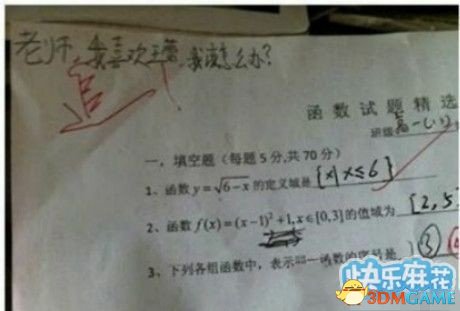 老师,我喜欢王蕾,我该怎么办?
追
函数试题精选
班级 高一(11)
一,填空题(每题5分,共70分)
1、函数 y=√6-x 的定义域是 {x|x≤6}
2、函数 f(x)=(x-1)²+1,x∈[0,3]的值域为 [2,5]
3、下列各组函数中,表示同一函数的序号是 ③
快乐麻花
3DMGAME